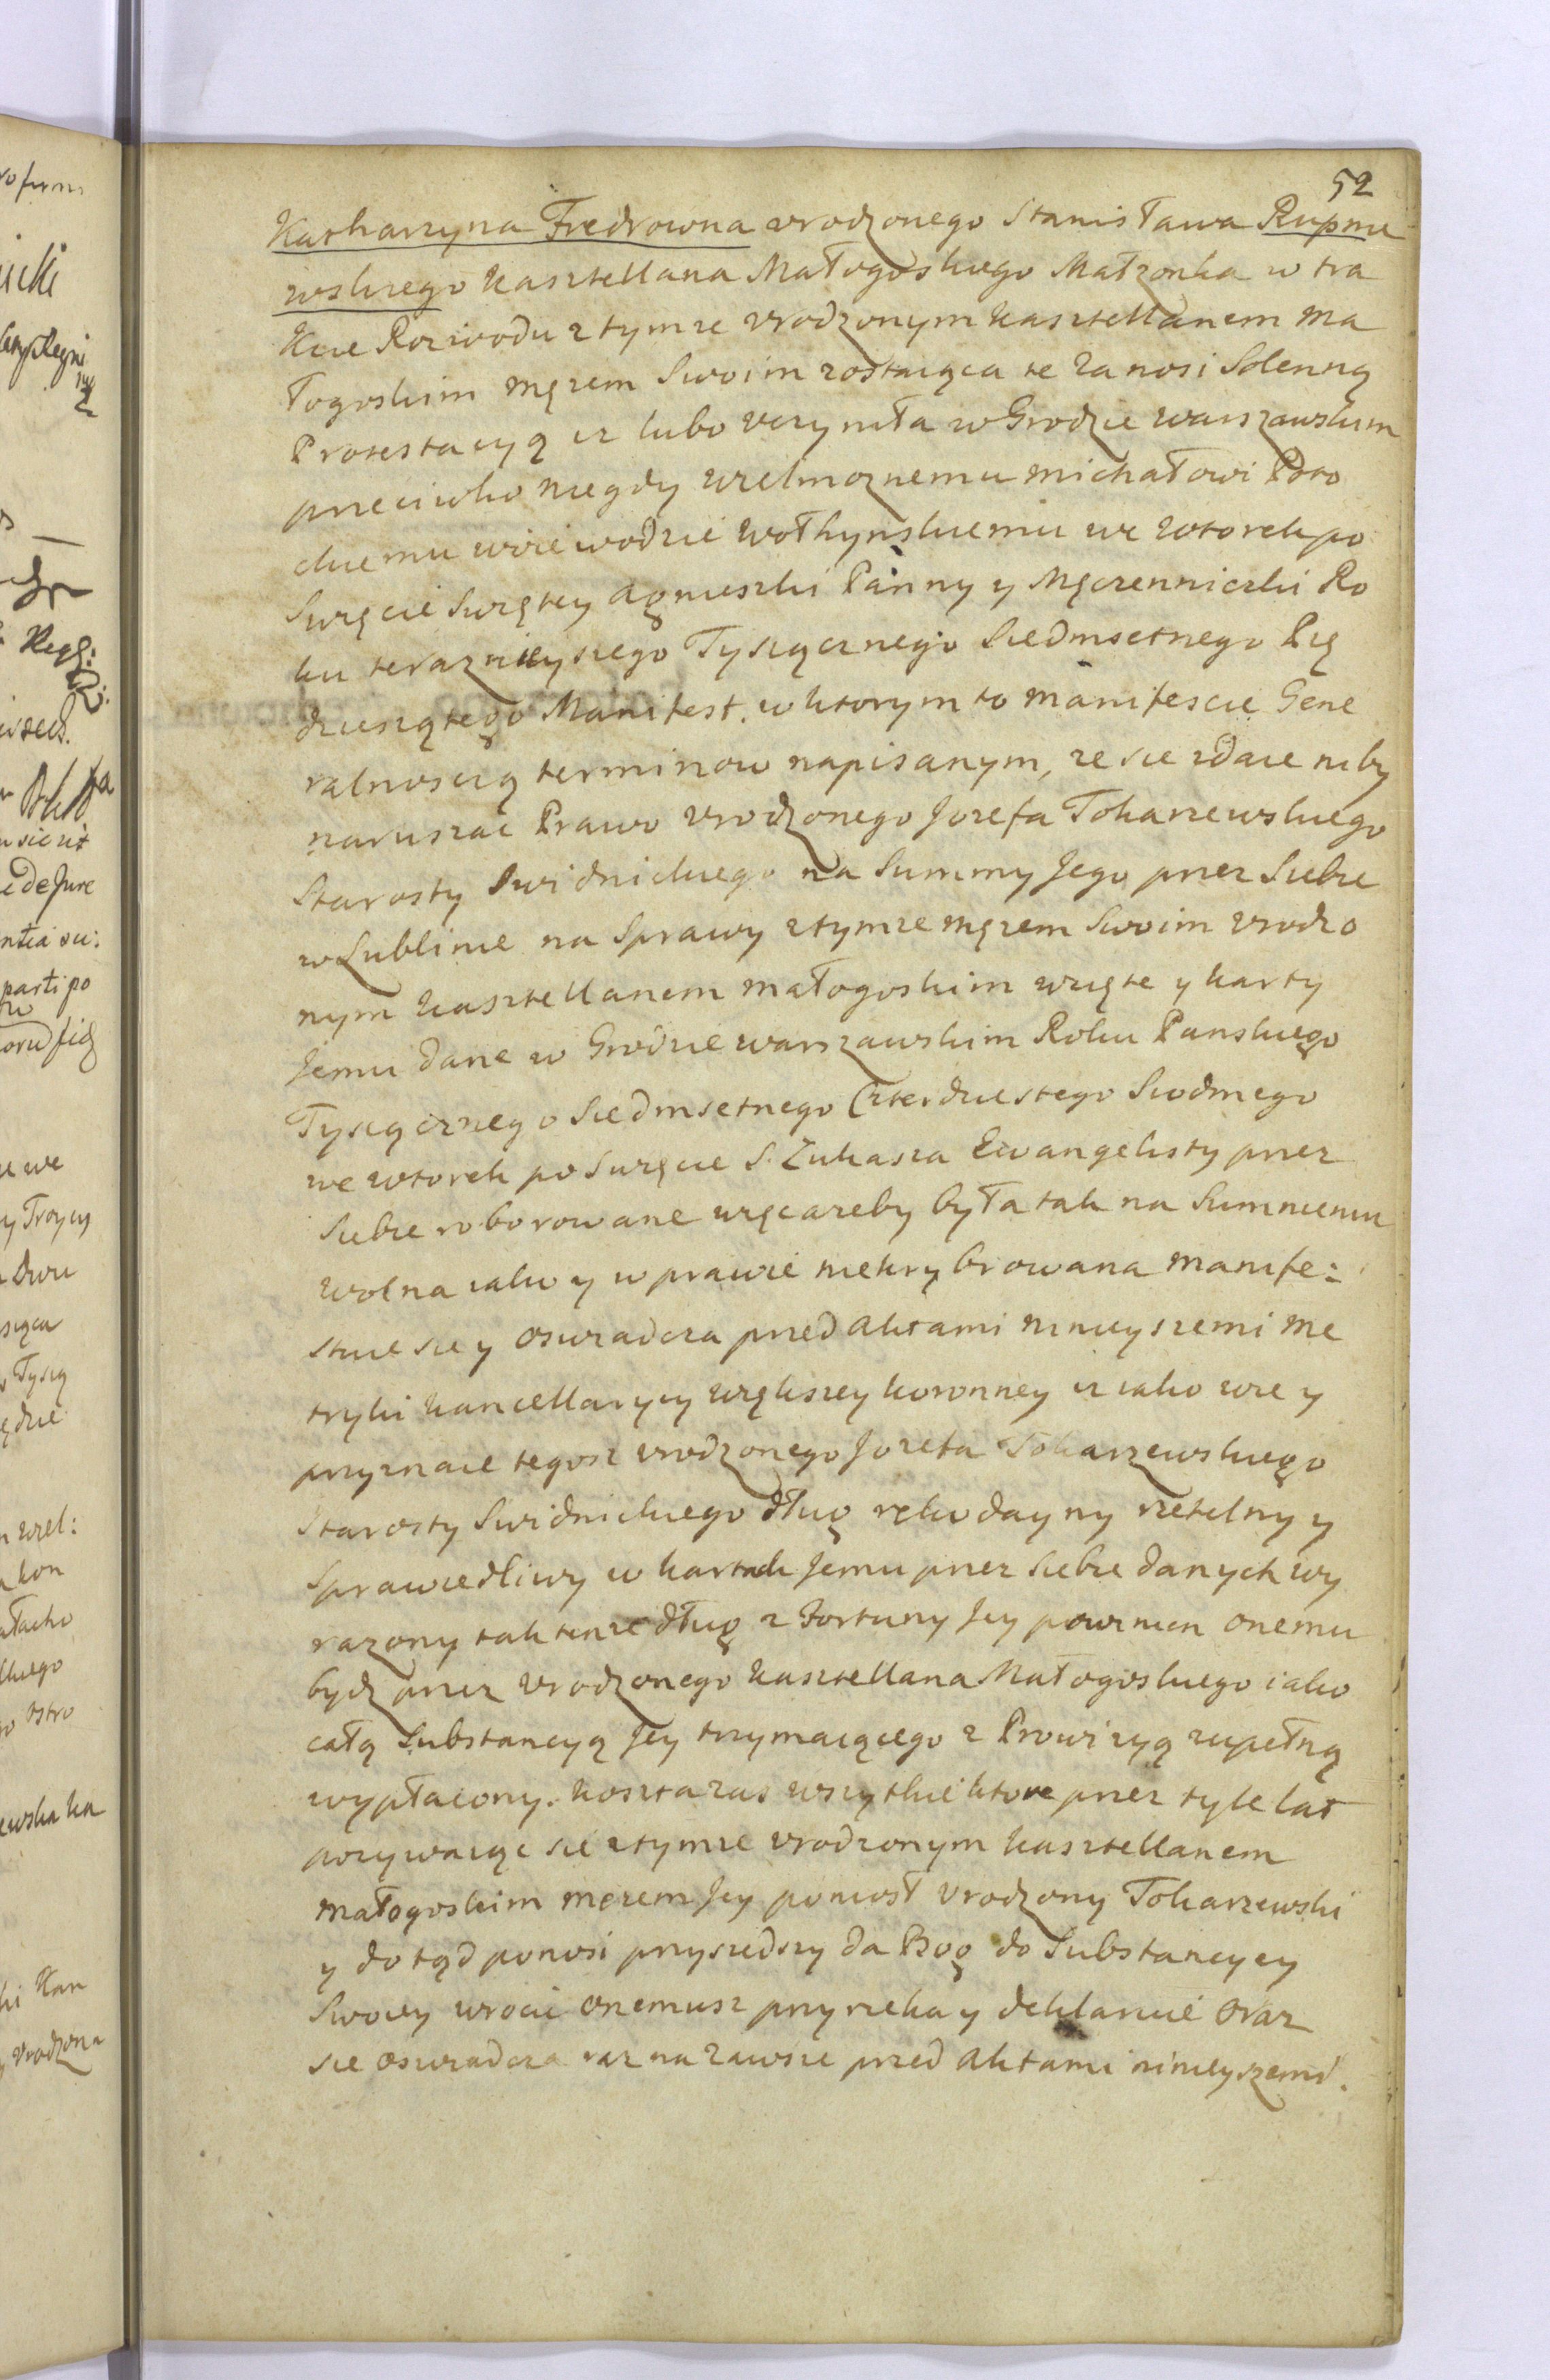 52
Katharzyna Fredrowna vrodzonego Stanisława Rupnie
wskiego Kasztellana Małogoskiego Małzonka w tra
kcie Rozwodu z tymze vrodzonym kasztellanem Ma
łogoskim męzem Swoim zostaiąca te zanosi Solenną
Protestacyą iz lubo vczyniła w Grodzie warszawskim
przeciwko niegdy wielmoznemu michałowi Poto
ckiemu woiewodzie wołhynskiemu we wtorek po
Swięcie Swiętey Agnieszki Panny y Męczenniczki Ro
ku teraznieyszego Tysiącznego Siedmsetnego Pię
dziesiątego Manifest. w ktorym to manifescie Gene
ralnoscią terminow napisanym, ze sie zdaie niby
naruszac Prawo vrodzonego Jozefa Tokarzewskiego
Starosty Swidnickiego na Summy Jego przez Siebie
w Lublinie na Sprawy z tymze męzem Swoim vrodzo
nym kasztellanem małogoskim wzięte y karty
Jemu dane w Grodzie warszawskim Roku Panskiego
Tysiącznego Siedmsetnego Czterdziestego Siodmego
we wtorek po Swięcie S. Łukasza Ewangelisty przez
Siebie roborowane więc azeby była tak na Summieniu
wolna iako y w prawie niekrybrowana manife:
stuie sie y oswiadcza przed Aktami ninieyszemi Me
tryki kancellaryiy większey koronney iz iako wie y
przyznaie tegosz vrodzonego Jozefa Tokarzewskiego
Starosty Swidnickiego dług rękodayny rzetelny y
Sprawiedliwy w kartach Jemu przez Siebie danych wy
razony tak tenze dług z Fortuny Jey powinien onemu
bydz przez vrodzonego kasztellana Małogoskiego iako
całą Substancyą Jey trzymaiącego z Prowizyą zupełną
wypłacony. koszta zas wszytkie ktore przez tyle lat
pozywaiąc sie z tymze vrodzonym kasztellanem
małogoskim męzem Jey poniosł vrodzony Tokarzewski
y do tąd ponosi przyszedszy da Bog do Substancyey
Swoiey wrocic onemusz przyrzeka y deklaruie oraz
sie oswiadcza raz na zawsze przed Aktami ninieyszemi.